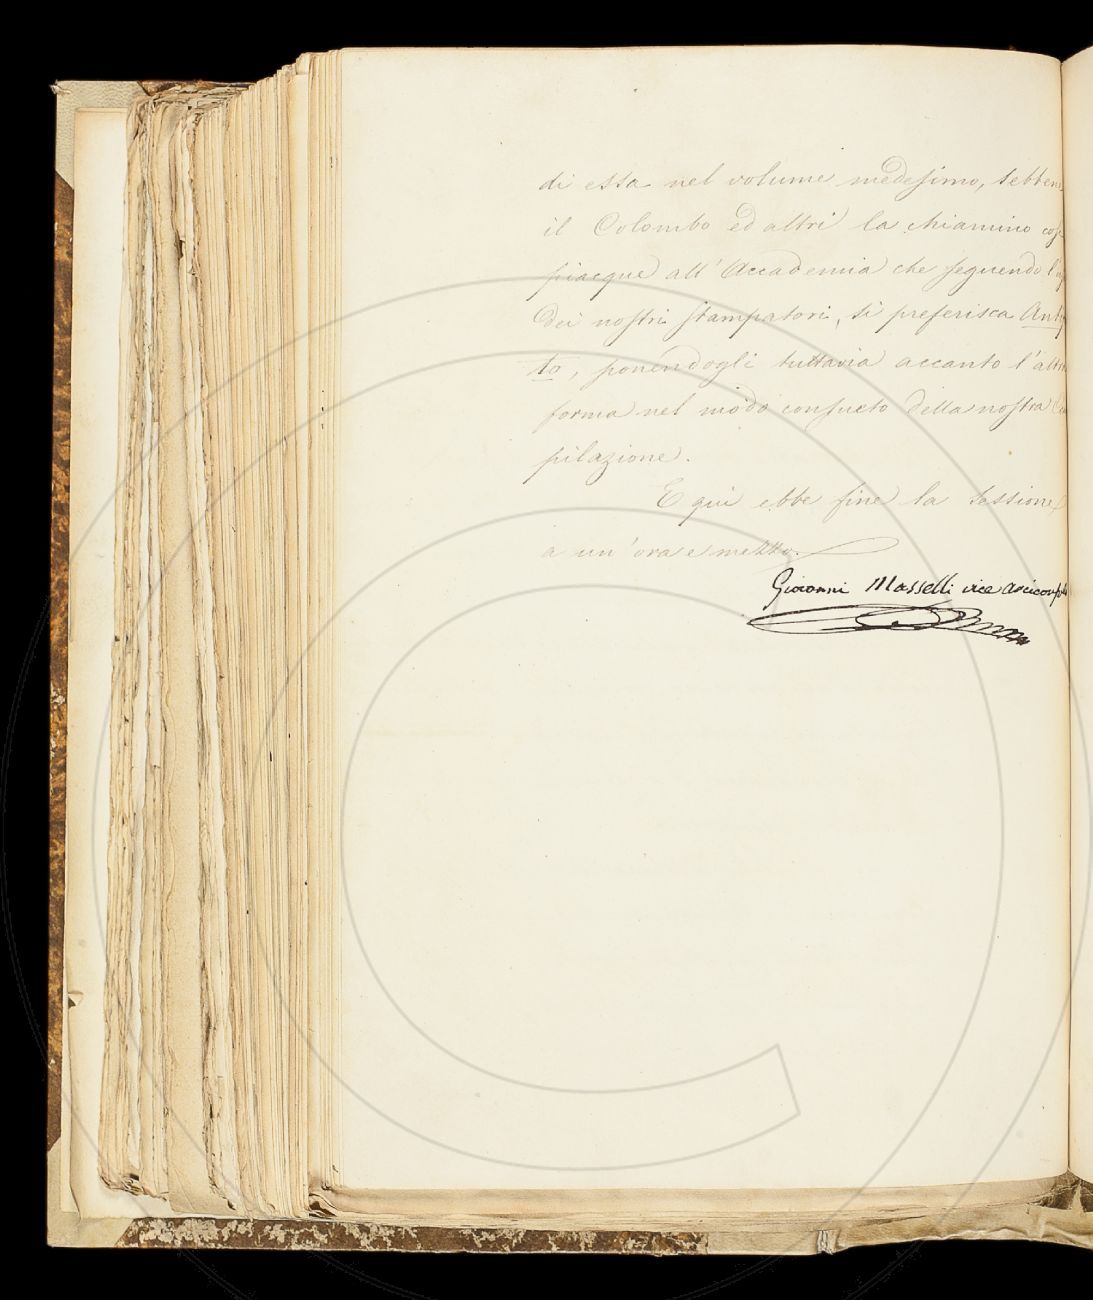 di essa nel volume medesimo, sebbene
il Colombo ed altri la chiamino
piacque all'Accademia che seguendo
dei nostri stampatori, si preferisca
to, ponendogli tuttavia accanto l'altra
forma nel modo consueto della nostra
pilazione.
E qui ebbe fine la sessione
a un'ora e mezzo.
Giovanni Masselli vice arciconsolo